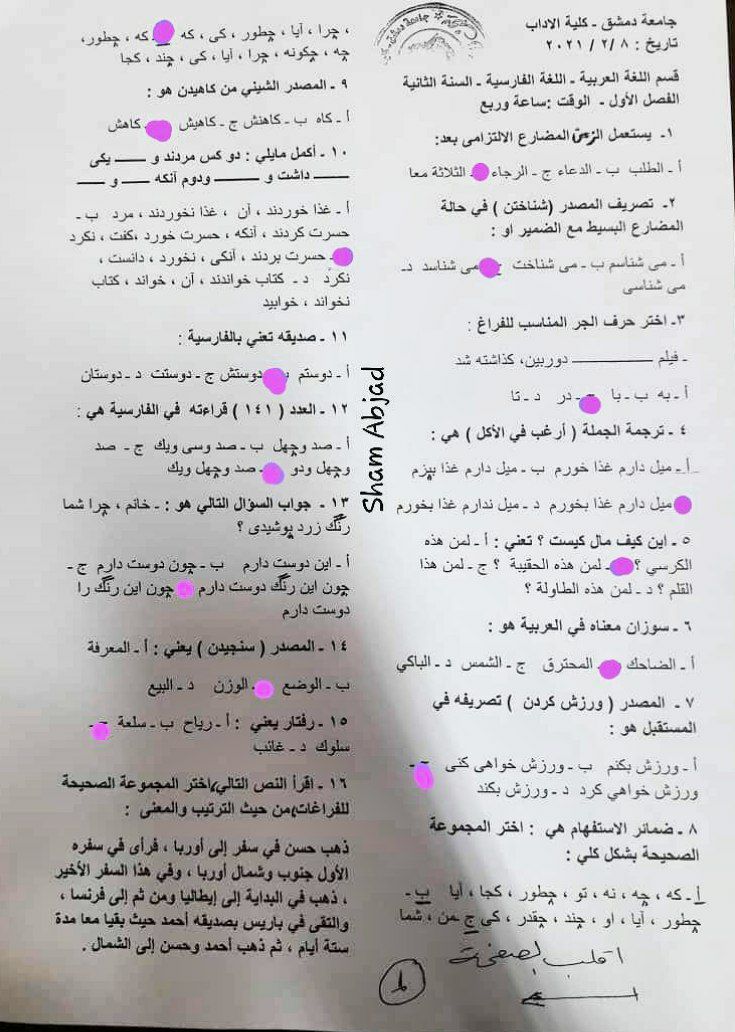 جامعة دمشق - كلية الاداب
تاريخ : ٨ /٢/ ٢٠٢١
قسم اللغة العربية - اللغة الفارسية - السنة الثانية
الفصل الأول - الوقت :ساعة وربع
١- يستعمل الزمن المضارع الالتزامى بعد:
أ - الطلب ب - الدعاء ج - الرجاء الثلاثة معا
٢- تصريف المصدر (شناختن ) في حالة
المضارع البسيط مع الضمير او :
أ - مى شناسم ب - مى شناخت مى شناسد د-
مى شناسى
٣- اختر حرف الجر المناسب للفراغ :
- فيلم ــــــــــ دوربين، كذاشته شد
أ - به ب - با در د - تا
٤ - ترجمة الجملة ( أرغب في الأكل ) هي :
أ - ميل دارم غذا خورم ب - ميل دارم غذا بپزم
ميل دارم غذا بخورم د - ميل ندارم غذا بخورم
٥ - اين كيف مال كيست ؟ تعني : أ - لمن هذه
الكرسي ؟ - لمن هذه الحقيبة ؟ ج - لمن هذا
القلم ؟ د - لمن هذه الطاولة ؟
٦ - سوزان معناه في العربية هو :
أ - الضاحك - المحترق ج - الشمس د - الباكي
٧ - المصدر ( ورزش كردن ) تصريفه في
المستقبل هو :
أ - ورزش بكنم ب - ورزش خواهى كنى -
ورزش خواهي كرد د - ورزش بكند
٨ - ضمائر الاستفهام هي : اختر المجموعة
الصحيحة بشكل كلي :
أ - كه ، چه ، نه ، تو ، چطور ، كجا ، آيا ب -
چطور ، آيا ، او ، چند ، چقدر ، كى ج - من ، شما
اقلب الصفحة
١
، چرا ، آيا ، چطور ، كى ، كه كه ، چطور،
چه ، چگونه ، چرا ، آيا ، كى ، چند ، كجا
٩ - المصدر الشيني من كاهيدن هو :
أ - كاه ب - كاهنش ج - كاهيش - كاهش
١٠ - أكمل مايلي : دو كس مردند و ــــــ يكى
ــــــ داشت و ــــــــ ودوم آنكه ــــــ و ــــــ
أ - غذا خوردند ، آن ، غذا نخوردند ، مرد ب -
حسرت كردند ، آنكه ، حسرت خورد ،كفت ، نكرد
- حسرت بردند ، آنكى ، نخورد ، دانست ،
نكرد د - كتاب خواندند ، آن ، خواند ، كتاب
نخواند ، خوابيد
١١ - صديقه تعني بالفارسية :
أ - دوستم دوستش ج - دوستت د - دوستان
١٢ - العدد ( ١٤١ ) قراءته في الفارسية هي :
أ - صد وچهل ب - صد وسى ويك ج - صد
وچهل ودو - صد وچهل ويك
١٣ - جواب السؤال التالي هو : - خانم ، چرا شما
رنگ زرد پوشيدى ؟
أ - اين دوست دارم ب - چون دوست دارم ج -
چون اين رنگ دوست دارم چون اين رنگ را
دوست دارم
١٤ - المصدر ( سنجيدن ) يعني : أ - المعرفة
ب - الوضع - الوزن د - البيع
١٥ - رفتار يعني : أ - رياح ب - سلعة -
سلوك د - غائب
١٦ - اقرأ النص التالي، اختر المجموعة الصحيحة
للفراغات من حيث الترتيب والمعنى :
ذهب حسن في سفر إلى أوربا ، فرأى في سفره
الأول جنوب وشمال أوربا ، وفي هذا السفر الأخير
، ذهب في البداية إلى إيطاليا ومن ثم إلى فرنسا ،
والتقى في باريس بصديقه أحمد حيث بقيا معا مدة
ستة أيام ، ثم ذهب أحمد وحسن إلى الشمال .
Sham Abjad